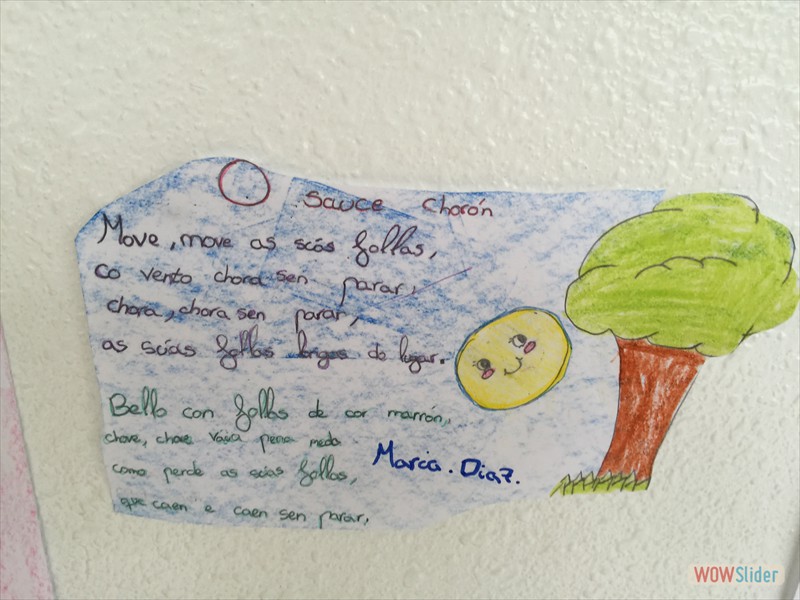 Sauce chorón
Move, move as súas follas,
co vento chora sen parar,
chora, chora sen parar,
as súas follas longas do lugar.
Bello con follas de cor marrón,
chove, chove vaia pena me da
como perde as súas follas,
que caen e caen sen parar.
María. Díaz.
WOWSlider